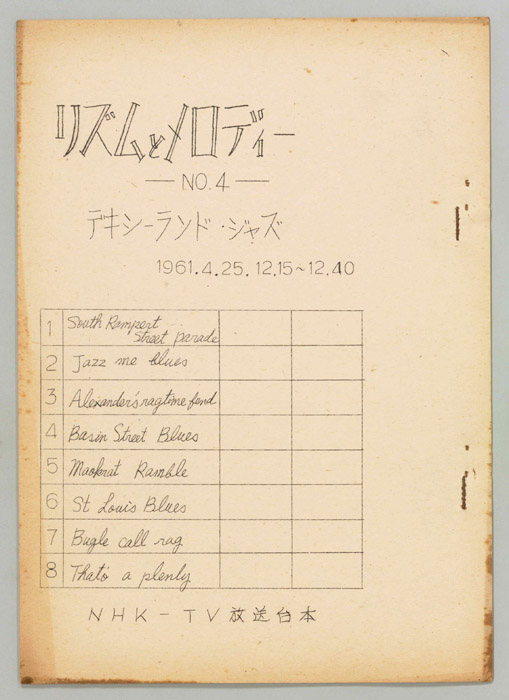 リズムとメロディー
— NO.4 —
デキシーランド・ジャズ
1961.4.25. 12.15~12.40
1 South Rampert
Street parade
2 Jazz me blues
3 Alexander's ragtime fend
4 Basin Street Blues
5 Maokrat Ramble
6 St Louis Blues
7 Bugle call rag
8 That's a plenly
NHK-TV放送台本